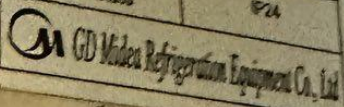 IP24
GD Midea Refrigeration Equipment Co., Ltd